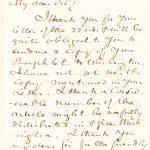 My dear Sir,
I thank you for your
letter of the 22nd. & will be
quite obliged to you
send me a copy of your
Pamphlet to Washington
I have not at
copy mentioned in your
letter. I think a consid-
erable number of the
article might be usefully
distributed in
I thank you
for the friendly